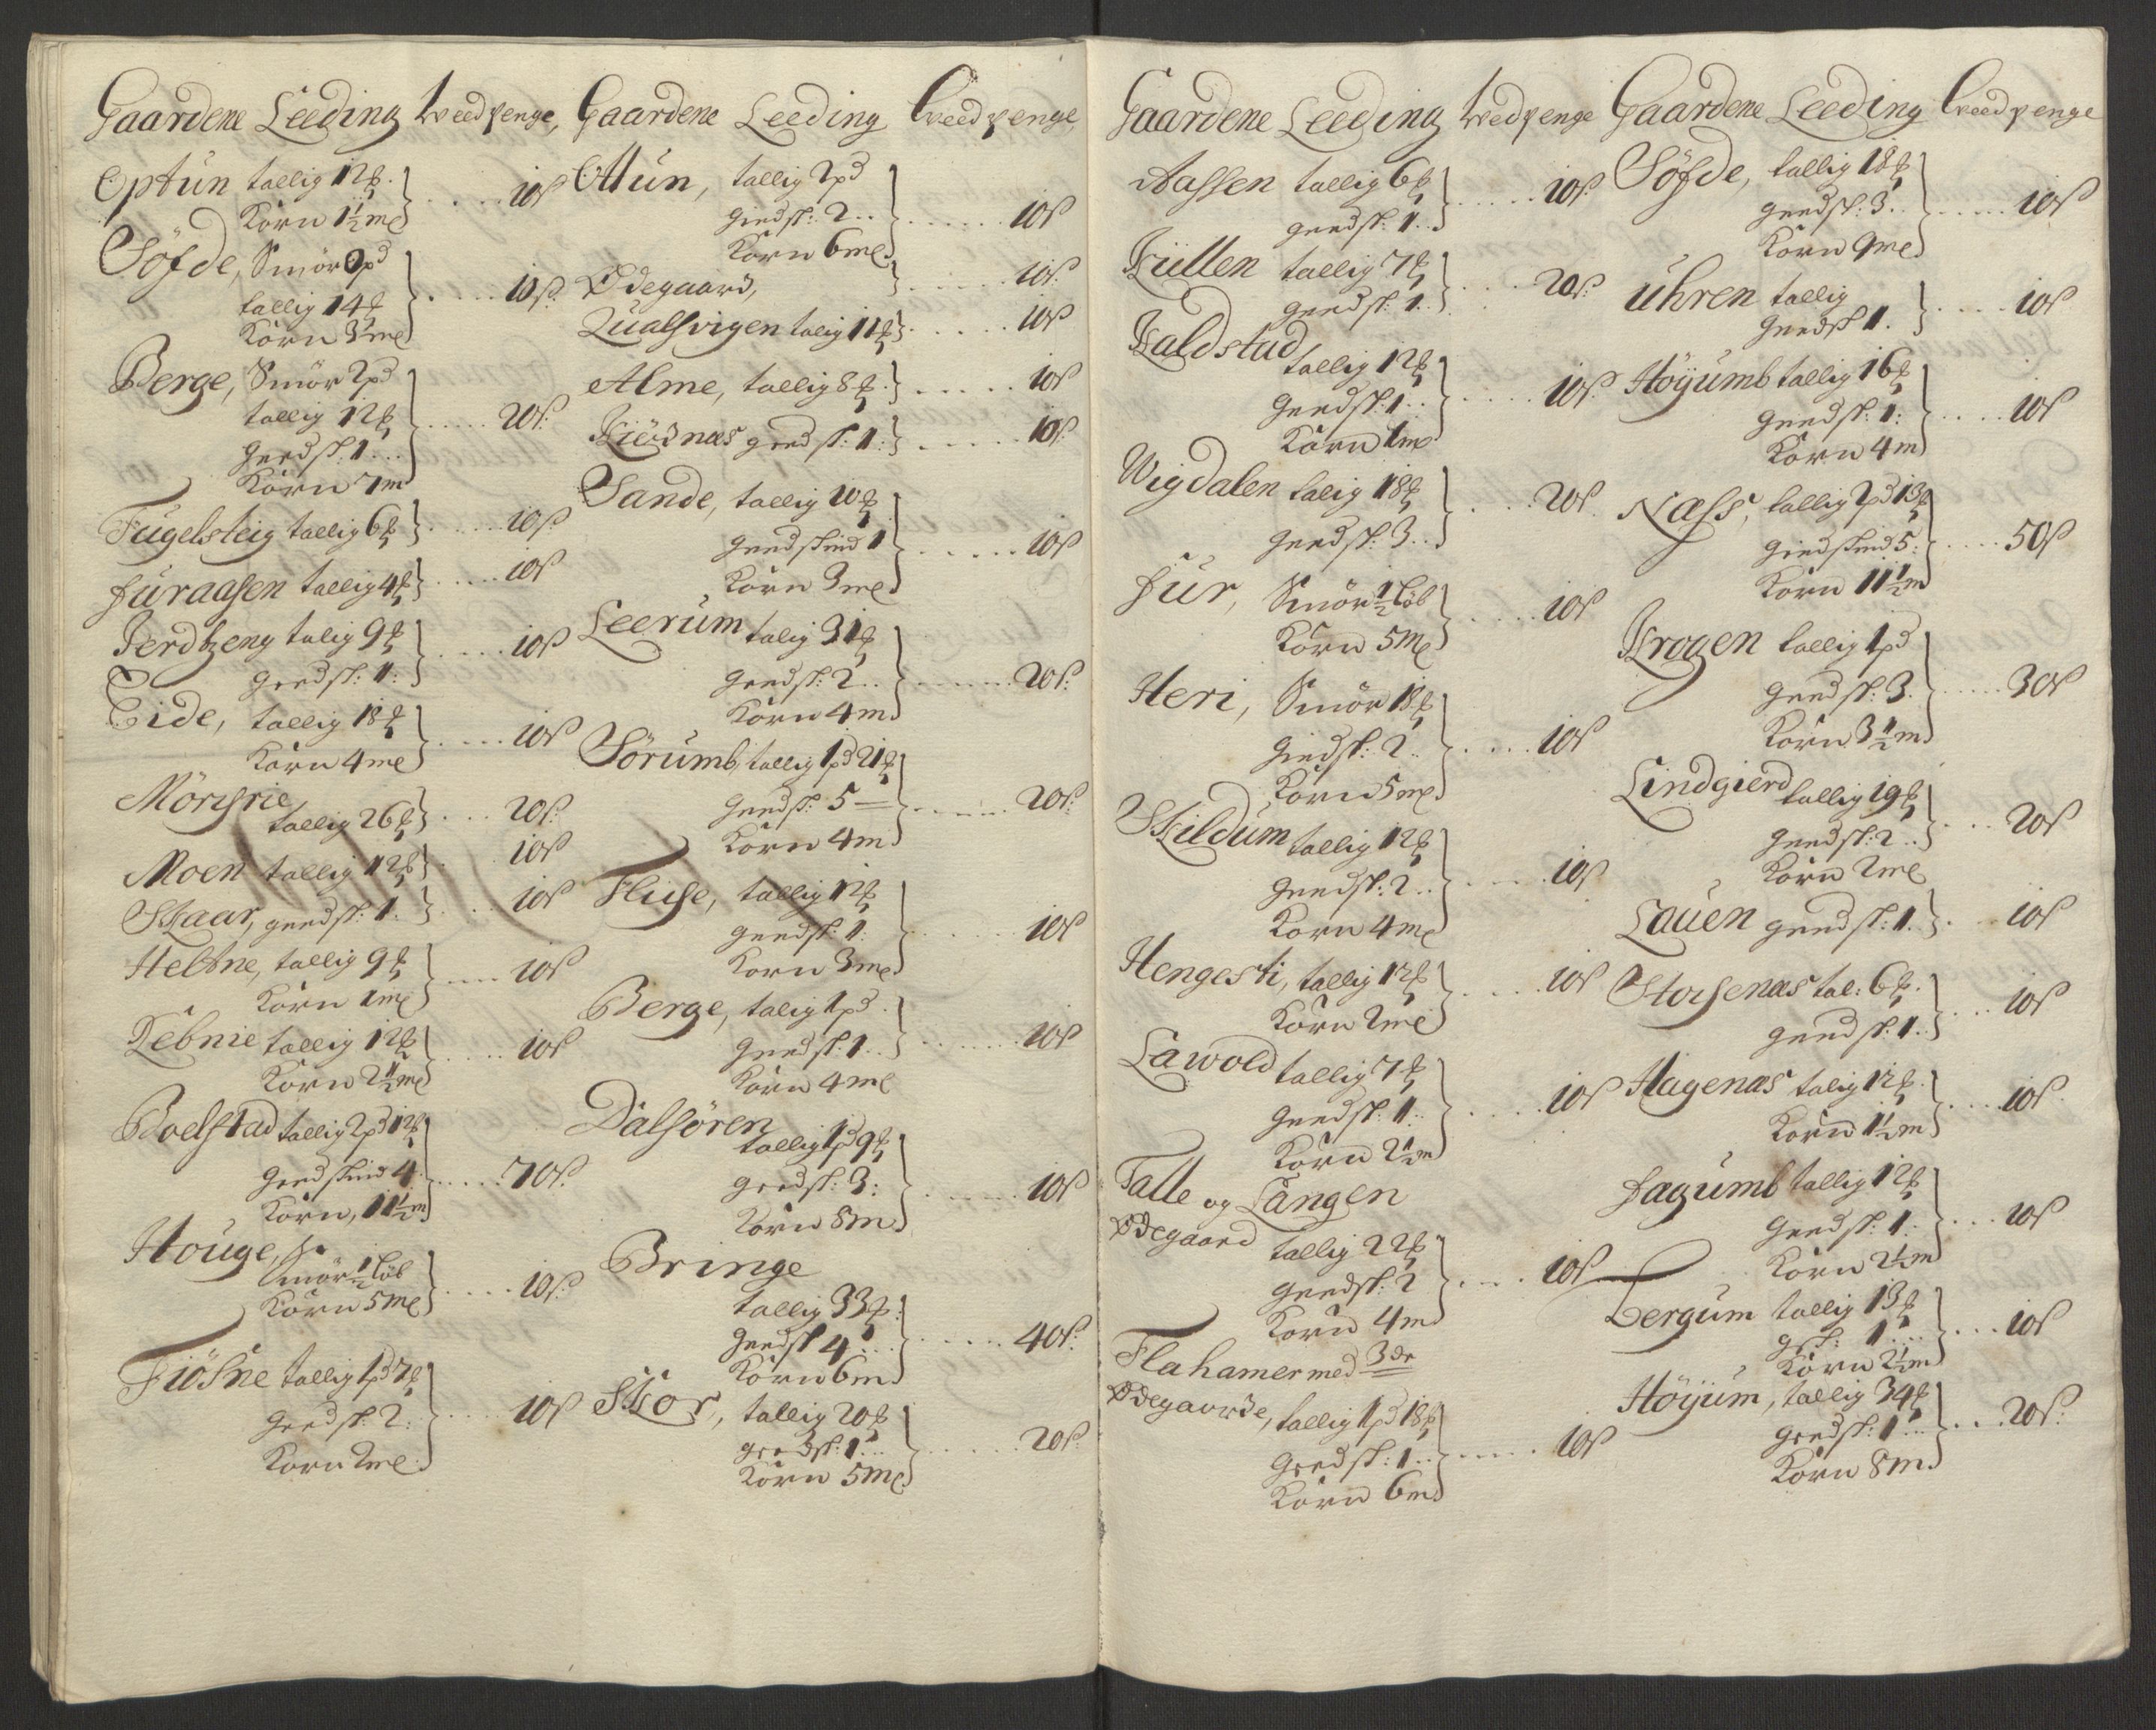 Gaardene Leeding Wedpenge,
Optun tallig 12 ℔.
Korn 1½ me ... 10 ß
Söfde, Smör 2 pd
tallig 14 ℔
Korn 3 me ... 10 ß
Berge, Smör 2 pd
tallig 12 ℔
geedsk: 1 ..
Korn 7 m ... 20 ß
Fugelsteig tallig 6 ℔ ... 10 ß
Furaasen tallig 4 ℔ ... 10 ß
talig 9 ℔
geedsk: 1: ... 10 ß
Eide, tallig 18 ℔
Korn 4 me ... 10 ß
Mörchrie
tallig 26 ℔ ... 20 ß
Moen tallig 12 ℔ ... 10 ß
Skaar, geedsk: 1. ... 10 ß
Heltne, tallig 9 ℔
Korn 1 me ... 10 ß
Tebnie tallig 12 ℔
Korn 2½ me ... 10 ß
Boelstad tallig 2 pd 12 ℔
geedskind 4.
Korn, 11½ m ... 70 ß
Houge,
Smör ½ löb
Korn 5 me ... 10 ß
Fiösne tallig 1 pd 7 ℔
geedsk: 2:
Korn 2 me ... 10 ß
Gaardene Leeding Weedpenge
Ottun, tallig 2 pd
giedsk: 2 ..
Korn 6 me ... 10 ß
Ødegaard, ... 10 ß
Qualsvigen talig 11 ℔ ... 10 ß
Alme, tallig 8 ℔ ... 10 ß
Kiödnæs geedsk: 1: ... 10 ß
Sande, tallig 10 ℔
geedskind 1
Korn 3 me ... 10 ß
Leerum talig 31 ℔
geedsk: 2 ..
Korn 4 m ... 20 ß
Sörumb, tallig 1 pd 21 ℔
geedsk: 5 —
Korn 4 m ... 20 ß
Fluge, tallig 12 ℔
geedsk: 1:
Korn 3 me ... 10 ß
Berge, talig 1 pd
geedsk: 1 ..
Korn 4 me ... 10 ß
Dalsören
tallig 1 pd 9 ℔
geedsk: 3:
Korn 8 m ... 10 ß
Bringe
tallig 33 ℔
geedsk 4 ...
Korn 6 m ... 40 ß
Skor, tallig 20 ℔
geedsk: 1 ...
Korn 5 me ... 20 ß
Gaardene Leeding Wedpenge
Aassen tallig 6 ℔
geedsk: 1 .. ... 10 ß
Kullen tallig 7 ℔
geedsk: 1 .. ... 20 ß
Kaldstad
tallig 12 ℔
geedsk: 1 ..
Korn 1 m ... 10 ß
Wigdalen talig 18 ℔
geedsk: 3 .. ... 20 ß
Fur, Smör ½ löb
Korn 5 me ... 10 ß
Heri, Smör 18 ℔
giedsk: 2 ..
Korn 5 me ... 10 ß
Skildum tallig 12 ℔
geedsk: 2 ..
Korn 4 me ... 10 ß
Hengesti, tallig 12 ℔
Korn 2 me ... 10 ß
Lawold tallig 7 ℔
geedsk: 1 ..
Korn 2½ m ... 10 ß
Talle og Langen
Ødegaard tallig 22 ℔
geedsk: 2
Korn 4 m ... 10 ß
Flahamer med 3de
Ødegaarde, tallig 1 pd 18 ℔
geedsk: 1 ..
Korn 6 m ... 10 ß
Gaardene Leeding Weedpenge
Söfde, tallig 18 ℔
geedsk: 3 ..
Korn 9 me ... 10 ß
Uhren tallig
geedsk 1. ... 10 ß
Höyumb tallig 16 ℔
geedsk: 1:
Korn 4 m ... 10 ß
Næss, tallig 2 pd 13 ℔
giedskind 5:
Korn 11½ m ... 50 ß
Krogen tallig 1 pd
geedsk: 3.
Korn 3½ m ... 30 ß
Lindgierd
tallig 19 ℔
geedsk: 2 ..
Korn 2 me ... 20 ß
Lauen geedsk: 1. ... 10 ß
Storsenæs tal: 6 ℔.
geedsk: 1 .. ... 10 ß
Hagenæs talig 12 ℔.
Korn 1½ m ... 10 ß
Fagumb tallig 12 ℔
geedsk: 1.
Korn 2½ m ... 10 ß
Bergum tallig 13 ℔
gsk: 1 ...
Korn 2½ m ... 10 ß
Höyum, tallig 34 ℔
geedsk: 1 ...
Korn 8 m ... 20 ß